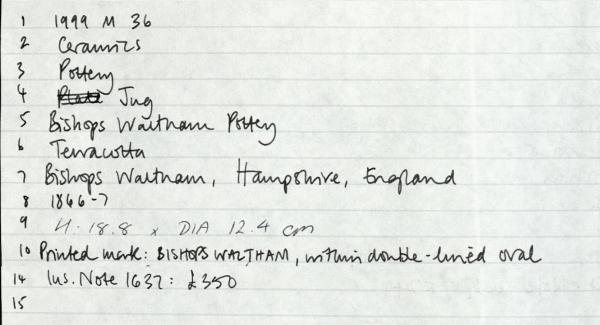 1 1999 M 36
2 Ceramics
3 Pottery
4 Jug
5 Bishops Waltham Pottery
6 Terracotta
7 Bishops Waltham, Hampshire, England
8 1866-7
9 H. 18.8 x DIA 12.4 cm
10 Printed mark: BISHOPS WALTHAM, within double-lined oval
14 Ins. Note 1637: £350
15